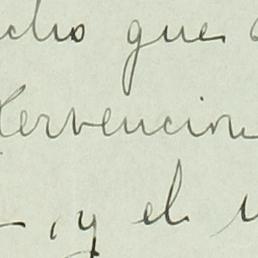 cho que
tervencion
, y el